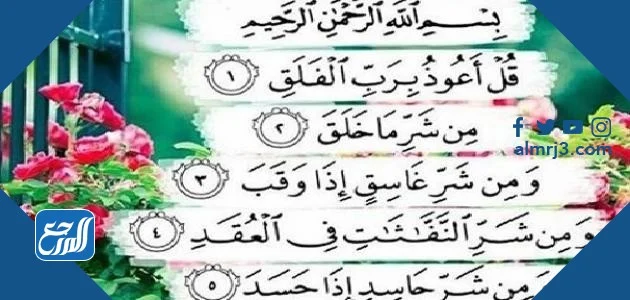 بِسْمِ اللَّهِ الرَّحْمَٰنِ الرَّحِيمِ
قُلْ أَعُوذُ بِرَبِّ الْفَلَقِ ١
مِن شَرِّ مَا خَلَقَ ٢
وَمِن شَرِّ غَاسِقٍ إِذَا وَقَبَ ٣
وَمِن شَرِّ النَّفَّاثَاتِ فِي الْعُقَدِ ٤
وَمِن شَرِّ حَاسِدٍ إِذَا حَسَدَ ٥
almrj3.com
المرجع